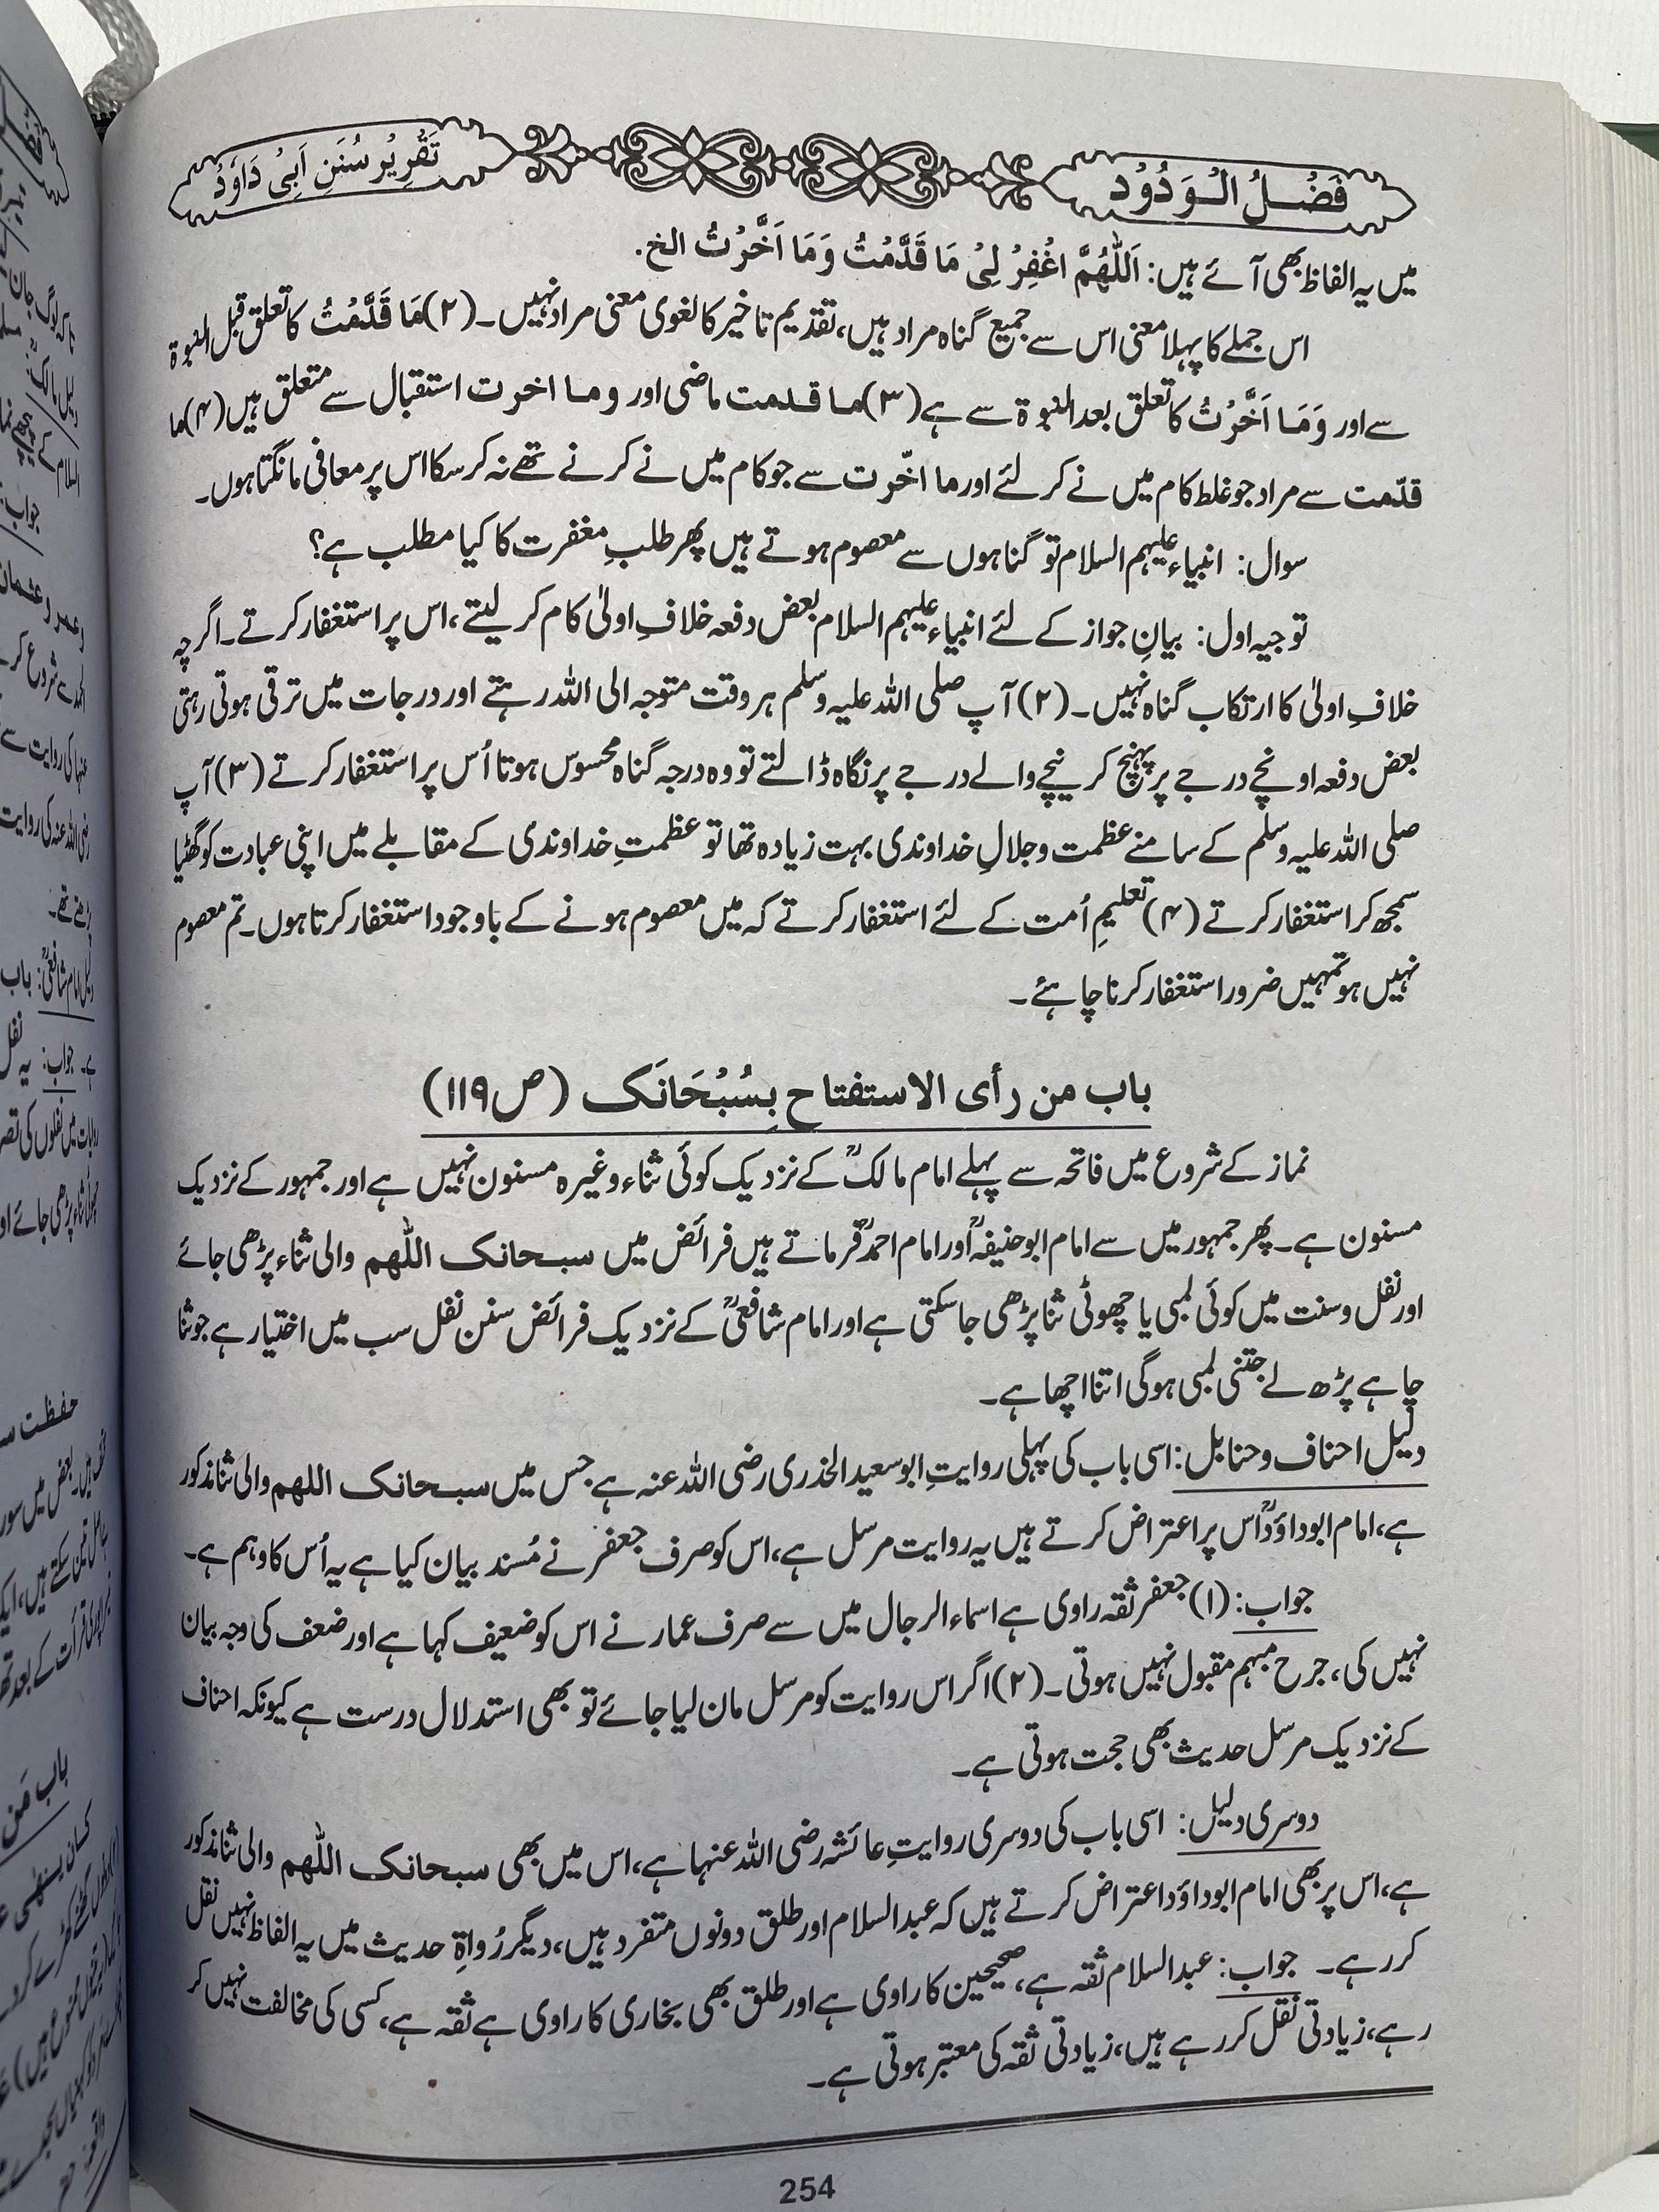 فَضْلُ الْوَدُوْد
تَقْرِيْر سُنَنِ اَبِىْ دَاوٗدُ
میں یہ الفاظ بھی آئے ہیں: اَللّٰهُمَّ اغْفِرْ لِىْ مَا قَدَّمْتُ وَمَا اَخَّرْتُ الخ.
اس جملے کا پہلا معنی اس سے جمیع گناہ مراد ہیں، تقدیم تاخیر کا لغوی معنی مراد نہیں۔ (۲) مَا قَدَّمْتُ کا تعلق قبل النبوۃ
سے اور وَمَا اَخَّرْتُ کا تعلق بعد النبوۃ سے ہے (۳) ما قدمت ماضی اور وما اخرت استقبال سے متعلق ہیں (۴) ما
قدّمت سے مراد جو غلط کام میں نے کر لئے اور ما اخّرت سے جو کام میں نے کرنے تھے نہ کر سکا اس پر معافی مانگتا ہوں۔
سوال: انبیاء علیہم السلام تو گناہوں سے معصوم ہوتے ہیں پھر طلبِ مغفرت کا کیا مطلب ہے؟
توجیہ اول: بیانِ جواز کے لئے انبیاء علیہم السلام بعض دفعہ خلافِ اولٰی کام کر لیتے، اس پر استغفار کرتے۔ اگرچہ
خلافِ اولٰی کا ارتکاب گناہ نہیں۔ (۲) آپ صلی اللہ علیہ وسلم ہر وقت متوجہ الی اللہ رہتے اور درجات میں ترقی ہوتی رہتی
بعض دفعہ اونچے درجے پر پہنچ کر نیچے والے درجے پر نگاہ ڈالتے تو وہ درجہ گناہ محسوس ہوتا اُس پر استغفار کرتے (۳) آپ
صلی اللہ علیہ وسلم کے سامنے عظمت و جلالِ خداوندی بہت زیادہ تھا تو عظمتِ خداوندی کے مقابلے میں اپنی عبادت کو گھٹیا
سمجھ کر استغفار کرتے (۴) تعلیمِ اُمت کے لئے استغفار کرتے کہ میں معصوم ہونے کے باوجود استغفار کرتا ہوں۔ تم معصوم
نہیں ہو تمہیں ضرور استغفار کرنا چاہئے۔
باب من رأى الاستفتاح بِسُبْحَانَکَ (ص۱۱۹)
نماز کے شروع میں فاتحہ سے پہلے امام مالکؒ کے نزدیک کوئی ثناء وغیرہ مسنون نہیں ہے اور جمہور کے نزدیک
مسنون ہے۔ پھر جمہور میں سے امام ابوحنیفہؒ اور امام احمدؒ فرماتے ہیں فرائض میں سبحانک اللّٰھم والی ثناء پڑھی جائے
اور نفل و سنت میں کوئی لمبی یا چھوٹی ثنا پڑھی جا سکتی ہے اور امام شافعیؒ کے نزدیک فرائض سنن نفل سب میں اختیار ہے جو ثنا
چاہے پڑھ لے جتنی لمبی ہوگی اتنا اچھا ہے۔
دلیل احناف و حنابل: اسی باب کی پہلی روایتِ ابوسعید الخدری رضی اللہ عنہ ہے جس میں سبحانک اللھم والی ثنا مذکور
ہے، امام ابوداؤدؒ اس پر اعتراض کرتے ہیں یہ روایت مرسل ہے، اس کو صرف جعفر نے مُسند بیان کیا ہے یہ اُس کا وہم ہے۔
جواب: (۱) جعفر ثقہ راوی ہے اسماء الرجال میں سے صرف عمار نے اس کو ضعیف کہا ہے اور ضعف کی وجہ بیان
نہیں کی، جرح مبہم مقبول نہیں ہوتی۔ (۲) اگر اس روایت کو مرسل مان لیا جائے تو بھی استدلال درست ہے کیونکہ احناف
کے نزدیک مرسل حدیث بھی حجت ہوتی ہے۔
دوسری دلیل: اسی باب کی دوسری روایتِ عائشہ رضی اللہ عنہا ہے، اس میں بھی سبحانک اللّٰھم والی ثنا مذکور
ہے، اس پر بھی امام ابوداؤد اعتراض کرتے ہیں کہ عبدالسلام اور طلق دونوں متفرد ہیں، دیگر رُواۃِ حدیث میں یہ الفاظ نہیں نقل
کر رہے۔ جواب: عبدالسلام ثقہ ہے، صحیحین کا راوی ہے اور طلق بھی بخاری کا راوی ہے ثقہ ہے، کسی کی مخالفت نہیں کر
رہے، زیادتی نقل کر رہے ہیں، زیادتی ثقہ کی معتبر ہوتی ہے۔
254